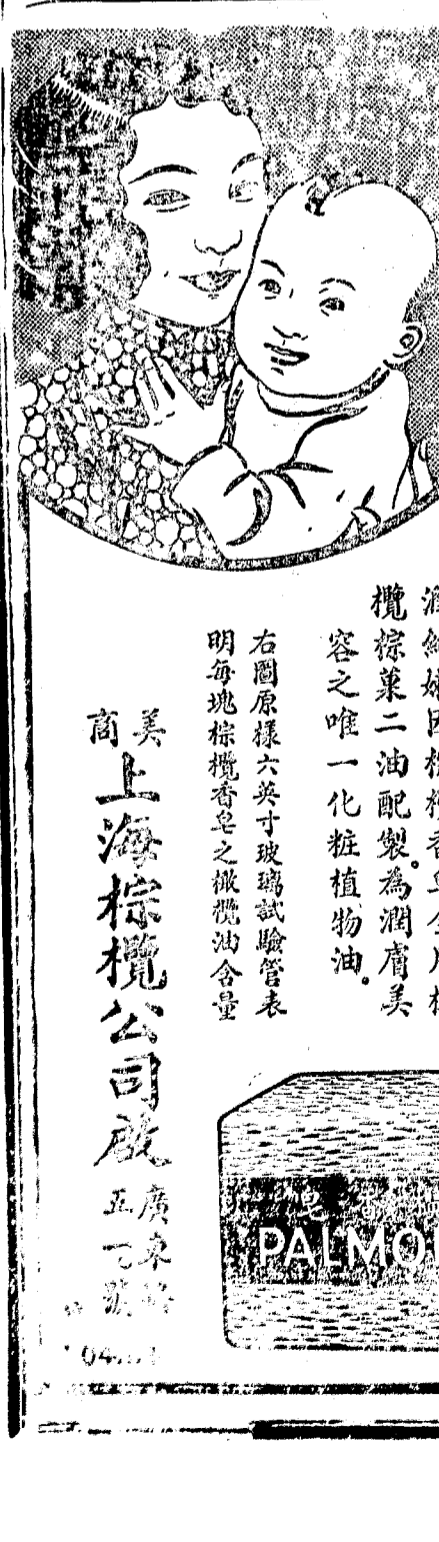 欖棕菓二油配製。為潤膚美
容之唯一化粧植物油。
右圖原樣六英寸玻璃試驗管表
明每塊棕欖香皂之橄欖油含量
美商
上海棕欖公司啟
廣東路
五一號
皂
PALMO